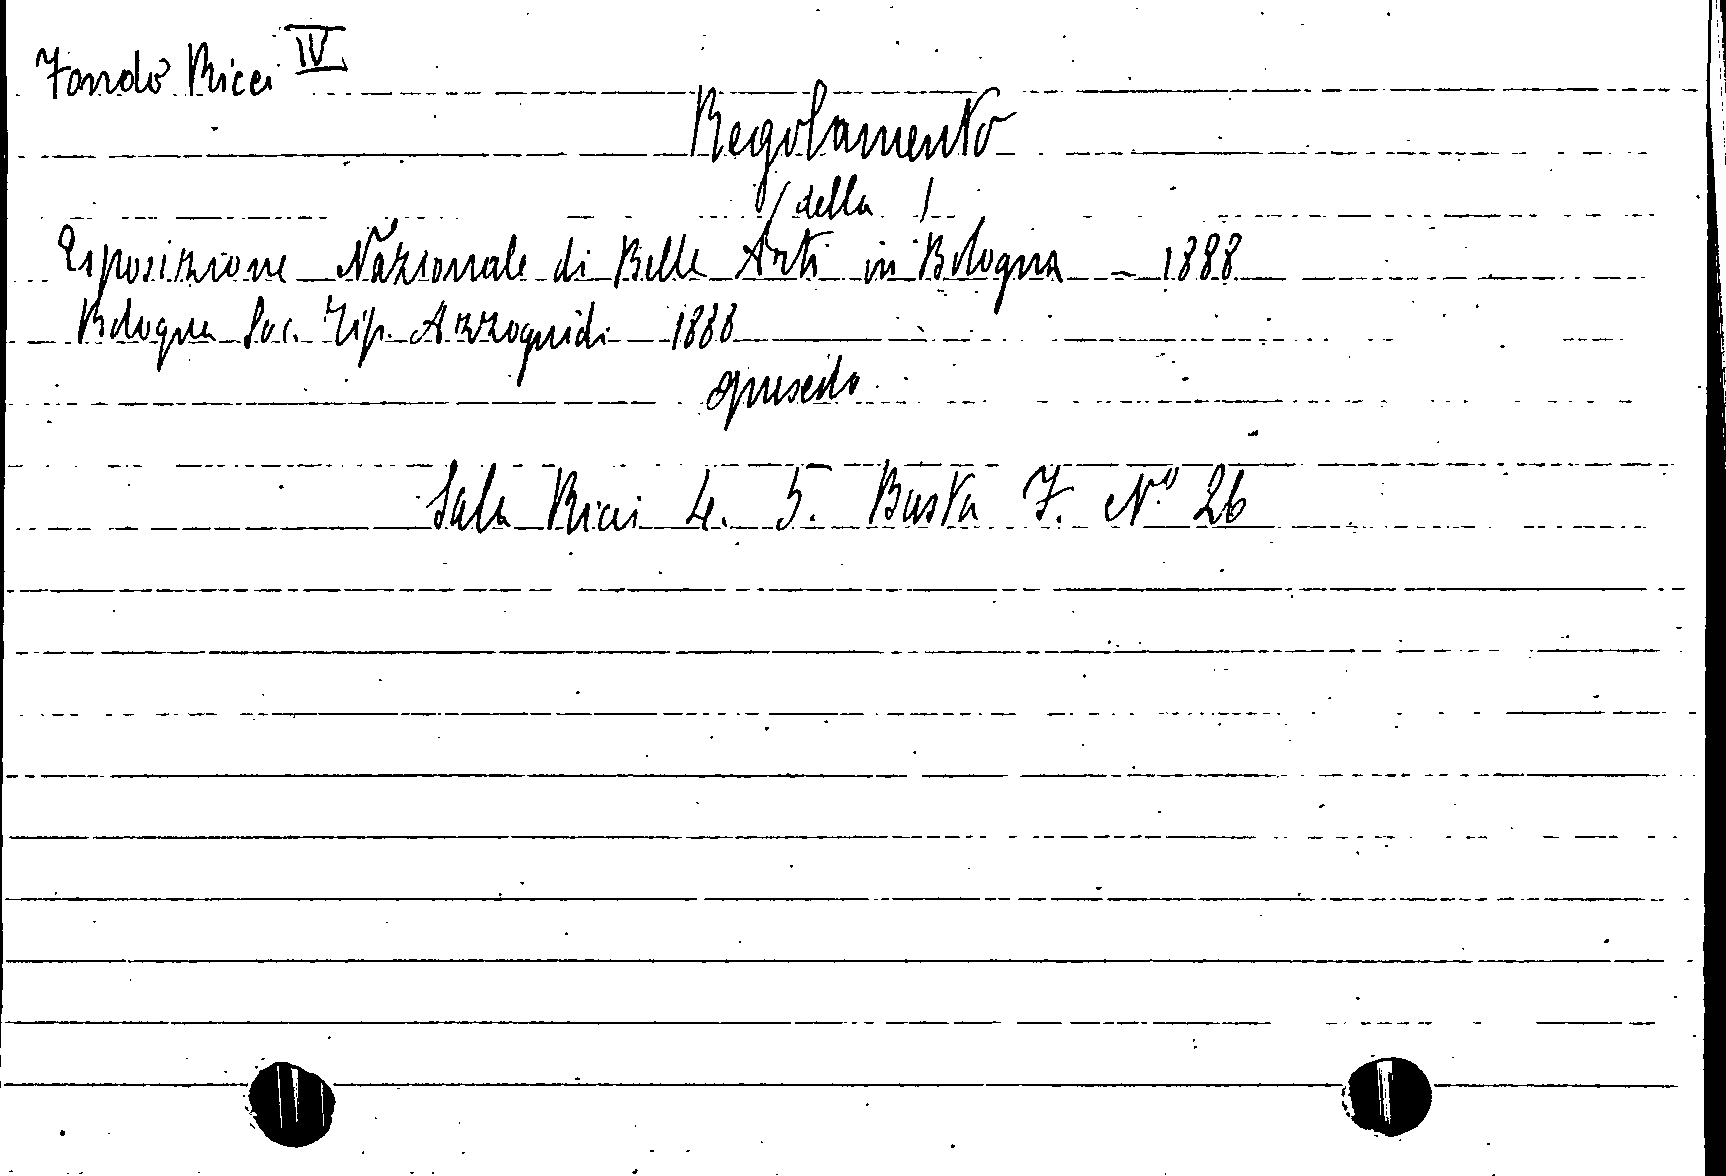 Fondo Ricci IV
Regolamento
/ della /
Esposizione Nazionale di Belle Arti in Bologna - 1888
Bologna Soc. Tip. Azzoguidi 1888
opuscolo
Sala Ricci 4. 5. Busta F. Nº 26